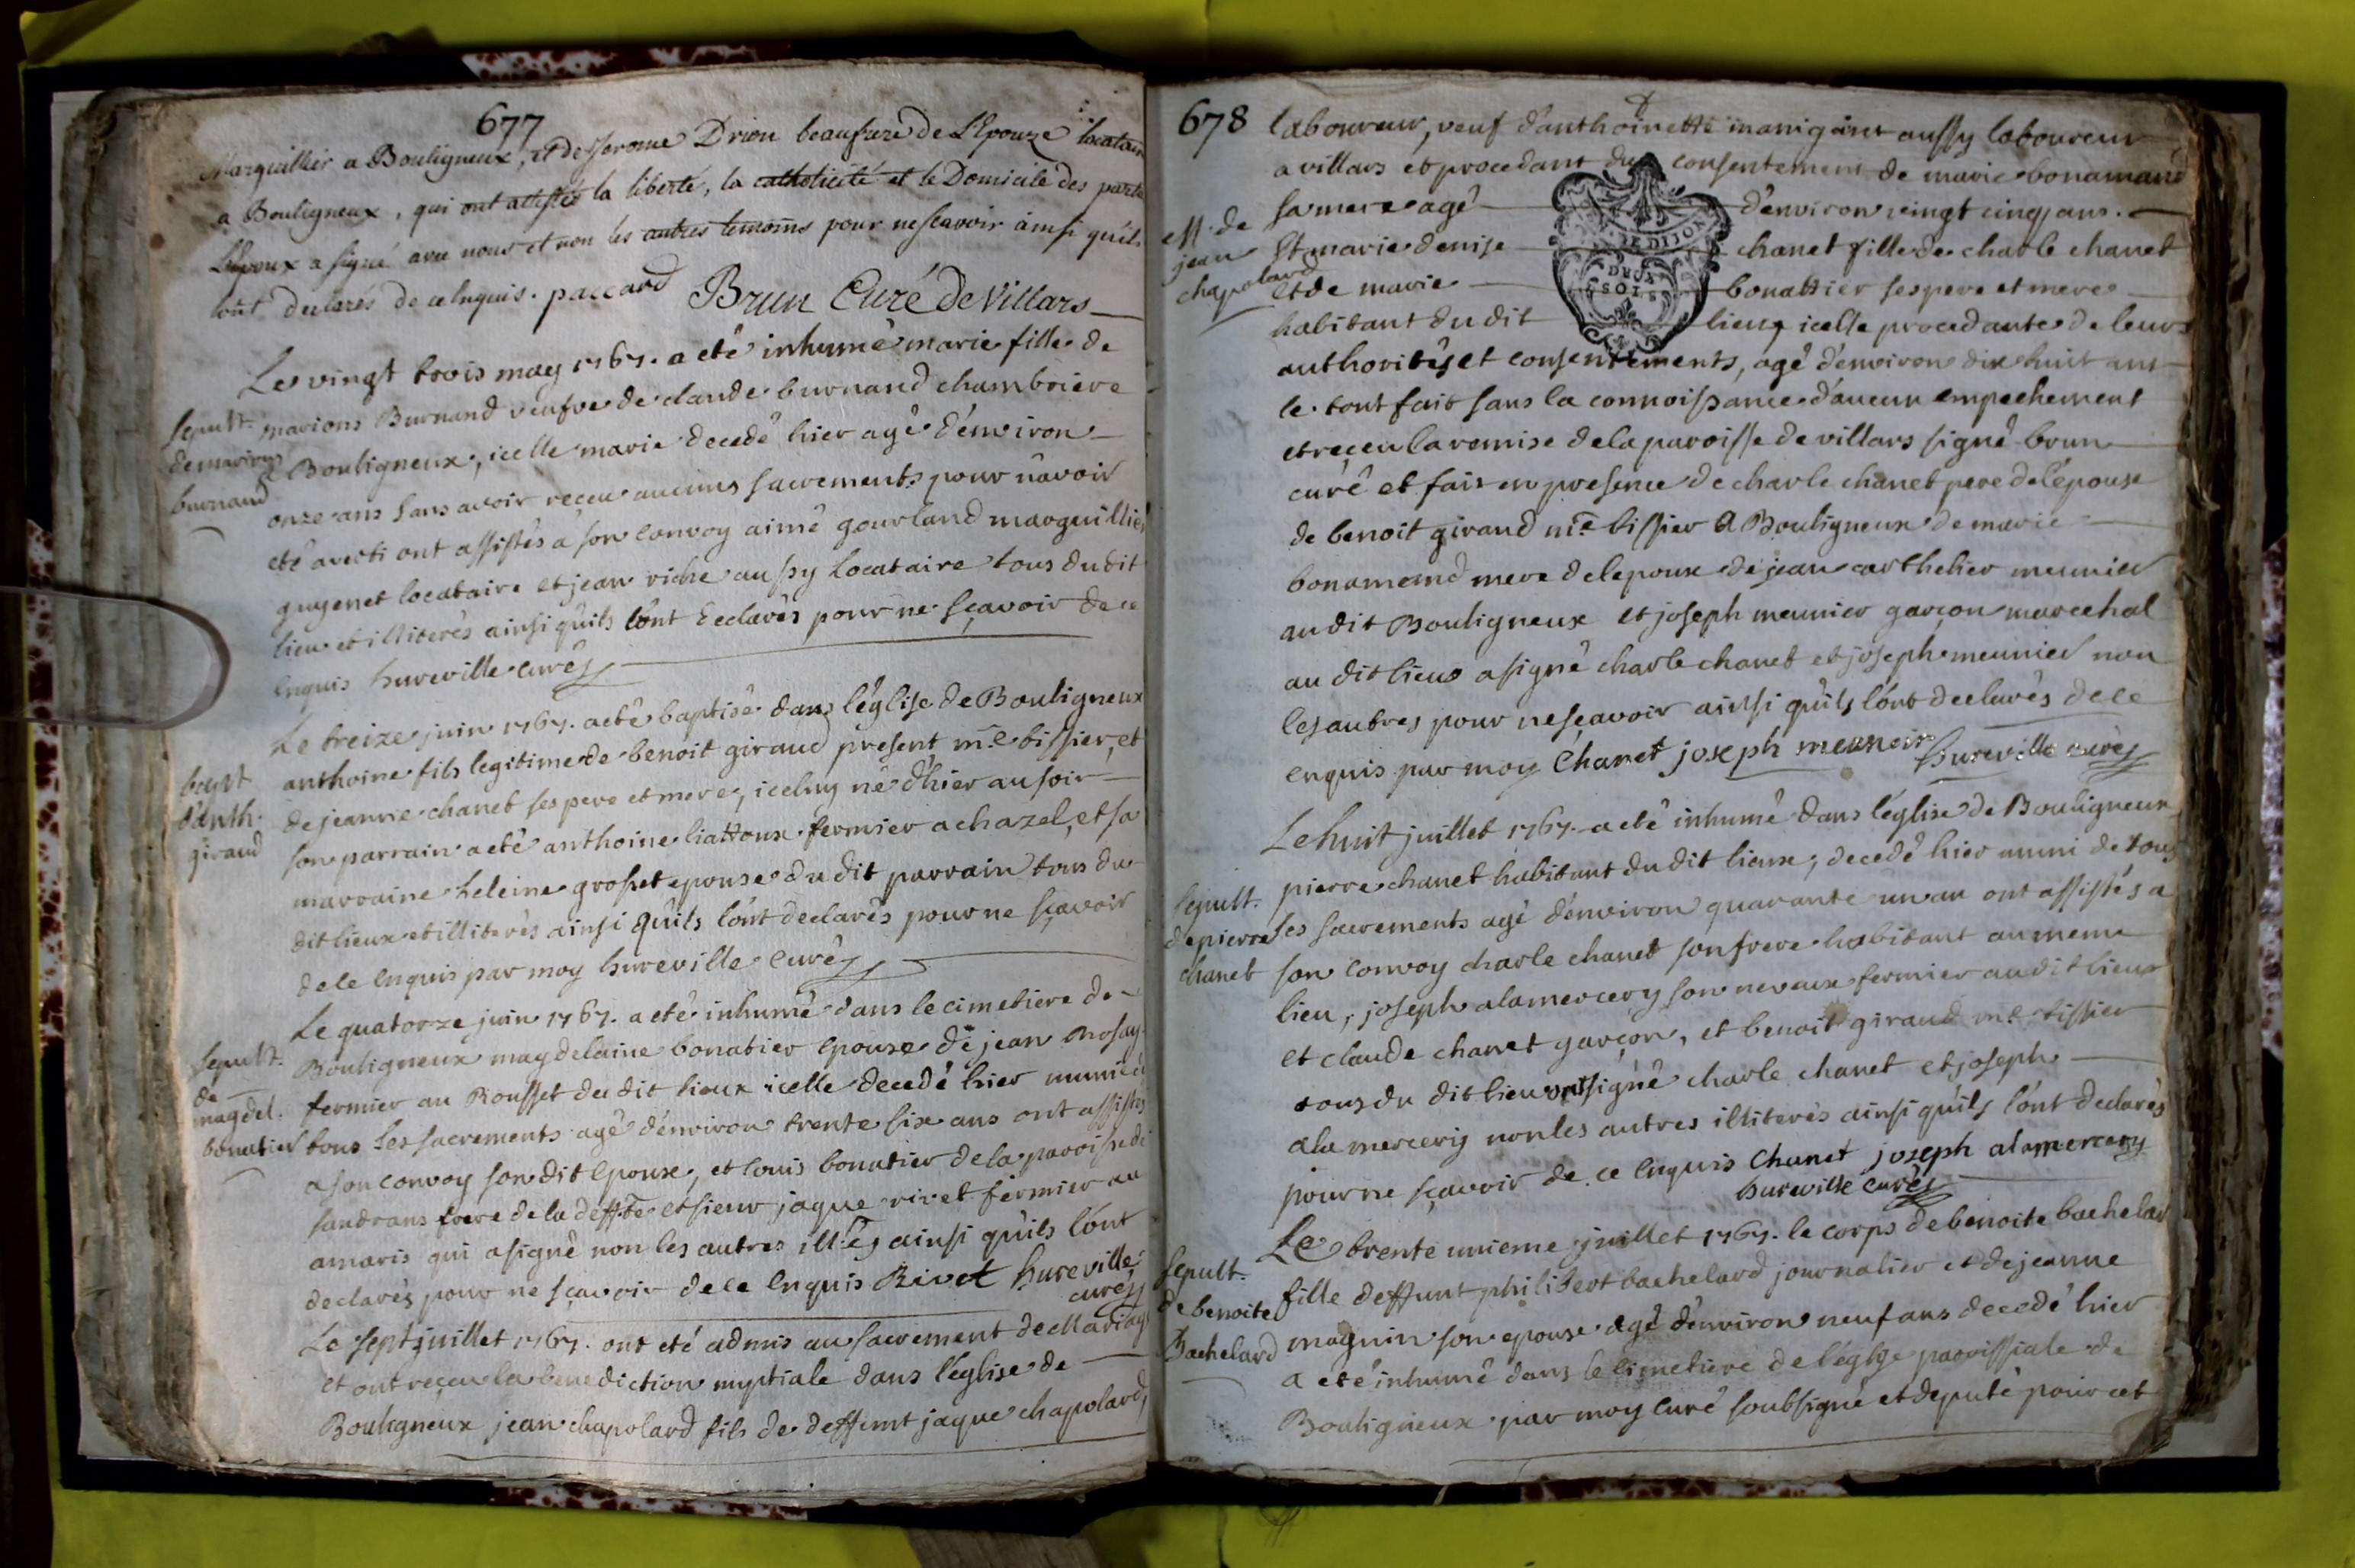 677
Marguillier a Bouligneux, et de Jerome Drion beaufrere de L'Epouze locataire
a Bouligneux, qui ont attestés la liberté, la catholicité et le Domicile des parties
L'Epoux a signé avec nous et non les autres temoins pour ne scavoir ainsi qu'ils
l'ont declarés de ce enquis. paccard Brun Curé de Villars
Le vingt trois may 1767. a eté inhumé marie fille de
sepult. marions Burnand veufve de claude burnand chambriere
de marion a Bouligneux, icelle marie decedé hier agé d'environ
burnand onze ans sans avoir reçeu aucuns sacrements pour n'avoir
eté averti ont assistés a son convoy aimé gourland marguillier
guyenet locataire et jean riche aussy locataire tous du dit
lieu et illiterés ainsi qu'ils l'ont declarés pour ne sçavoir de ce
enquis hureville curé
Le treize juin 1767. a eté baptisé dans l'église de Bouligneux
bapt. d'anth. giraud
anthoine fils legitime de benoit giraud present m.e tissier, et
de jeanne chanet ses pere et mere, iceluy né d'hier au soir
son parrain a eté anthoine liattoux fermier a chazel, et sa
marraine heleine grosset epouse du dit parrain tous du
dit lieux et illiterés ainsi qu'ils l'ont declarés pour ne sçavoir
de ce enquis par moy hureville curé
Le quatorze juin 1767. a eté inhumé dans le cimetiere de
sepult. Bouligneux magdelaine bonatier epouse de jean mosay
de magdel. fermier au Rousset du dit lieux icelle decedé hier munie de
bonatier tous les sacrements agé d'environ trente six ans ont assistés
a son convoy son dit epoux, et louis bonatier de la paroisse de
sandrans frere de la deff.te et sieur jaque rivet fermier au
amaris qui a signé non les autres ill.és ainsi qu'ils l'ont
declarés pour ne sçavoir de ce enquis Rivet hureville
curé
Le sept juillet 1767. ont eté admis au sacrement de Mariage
et ont reçeu la benediction nuptiale dans l'église de
Bouligneux jean chapolard fils de deffunt jaque chapolard,
678
laboureur, veuf d'anthoinette manigant aussy laboureur
a villars et procedant du consentement de marie bonamand
M. de jean chapolard
sa mere agé d'environ vingt cinq ans.
Et marie denise chanet fille de charle chanet
et de marie bonattier ses pere et mere
habitant du dit lieux icelle procedante de leurs
authorités et consentements, agé d'environ dix huit ans
le tout fait sans la connoissance d'aucun empechement
et reçeu la remise de la paroisse de villars signé brun
curé et fait en presence de charle chanet pere de l'épouse
de benoit giraud m.e tissier a Bouligneux de marie
bonamand mere de lepoux de jean carthelier meunier
au dit Bouligneux et joseph meunier garçon marechal
au dit lieu a signé charle chanet et joseph meunier non
les autres pour ne sçavoir ainsi qu'ils l'ont declarés de ce
enquis par moy Chanet joseph meuneir hureville curé
Le huit juillet 1767. a eté inhumé dans l'église de Bouligneux
sepult. pierre chanet habitant du dit lieux, decedé hier muni de tous
de pierre ses sacrements agé d'environ quarante un an ont assistés a
chanet son convoy charle chanet son frere habitant au meme
lieu, joseph alamercery son neveux fermier au dit lieux
et claude chanet garçon, et benoit giraud m.e tissier
tous du dit lieu ont signé charle chanet et joseph
alamercery non les autres illiterés ainsi qu'ils l'ont declarés
pour ne sçavoir de ce enquis Chanet joseph alamercery
hureville curé
Le trente unieme juillet 1767. le corps de benoite bachelard
sepult. fille deffunt philibert bachelard journalier et de jeanne
de benoite magnin son epouse agé d'environ neuf ans decedé hier
Bachelard a eté inhumé dans le cimetiere de l'église paroissiale de
Bouligneux par moy curé soubsigné et deputé pour cet
DE DIJON
DEUX
SOLS